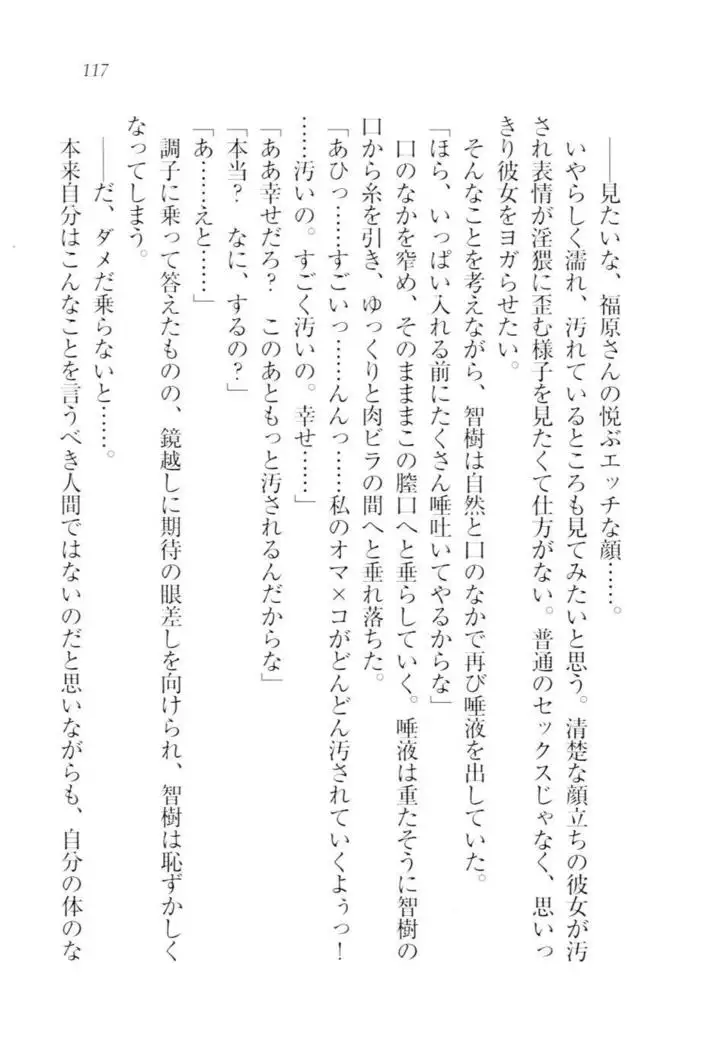 117
――見たいな、福原さんの悦ぶエッチな顔……。
いやらしく濡れ、汚れているところも見てみたいと思う。清楚な顔立ちの彼女が汚
され表情が淫猥に歪む様子を見たくて仕方がない。普通のセックスじゃなく、思いっ
きり彼女をヨガらせたい。
そんなことを考えながら、智樹は自然と口のなかで再び唾液を出していた。
「ほら、いっぱい入れる前にたくさん唾吐いてやるからな」
口のなかを窄め、そのまままこの膣口へと垂らしていく。唾液は重たそうに智樹の
口から糸を引き、ゆっくりと肉ビラの間へと垂れ落ちた。
「あひっ……すごいっ……んんっ……私のオマ×コがどんどん汚されていくよぅっ！
……汚いの。すごく汚いの。幸せ……」
「ああ幸せだろ？　このあともっと汚されるんだからな」
「本当？　なに、するの？」
「あ……えと……」
調子に乗って答えたものの、鏡越しに期待の眼差しを向けられ、智樹は恥ずかしく
なってしまう。
――だ、ダメだ乗らないと……。
本来自分はこんなことを言うべき人間ではないのだと思いながらも、自分の体のな